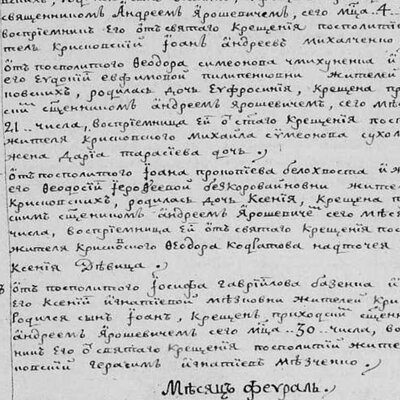 священникомъ Андреемъ Ярошевичемъ, сего мца 4
воспрїемникъ Его отъ святаго Крещенїя посполитїй
тель Крисковскїй Іоанъ андреевъ михалченко
отъ посполитого Ѳеодора симеонова и
его Евдокїй евфимовой пилипенковни жителей
повскихъ, родилась дочь Евфросинїя, крещена пр
скїй сщенникомъ андреемъ Ярошевичемъ, сего мѣс
21 числа, воспрїемница Ей отъ стаго Крещенїя пос
жителя крисковского михайла сумеонова
жена дарїа тарасїева дочъ
отъ посполитого Іоана прокопїева белохвоста и ж
его Ѳеодосїй Іероѳеевой безкоровайновни жите
крисковскихъ, родилась дочь Ксенїя, крещена п
скимъ сщенникомъ андреемъ Ярошевичемъ сего мѣся
числа, воспрїемница Ей отъ святаго Крещенїя пос
жителя Крисковского Ѳеодора
Ксенїя Дѣвица
отъ посполитого Іосифа гаврїилова базенка и
Его Ксенїй игнатїевой жителей кри
родился сынъ Іоанъ, крещенъ, приходскїй сщен
андреемъ Ярошевичемъ сего мца 30 числа, во
никъ Его о святаго крещенїя посполитїй жите
повскїй герасимъ игнатїевъ
Мѣсяцъ феураль